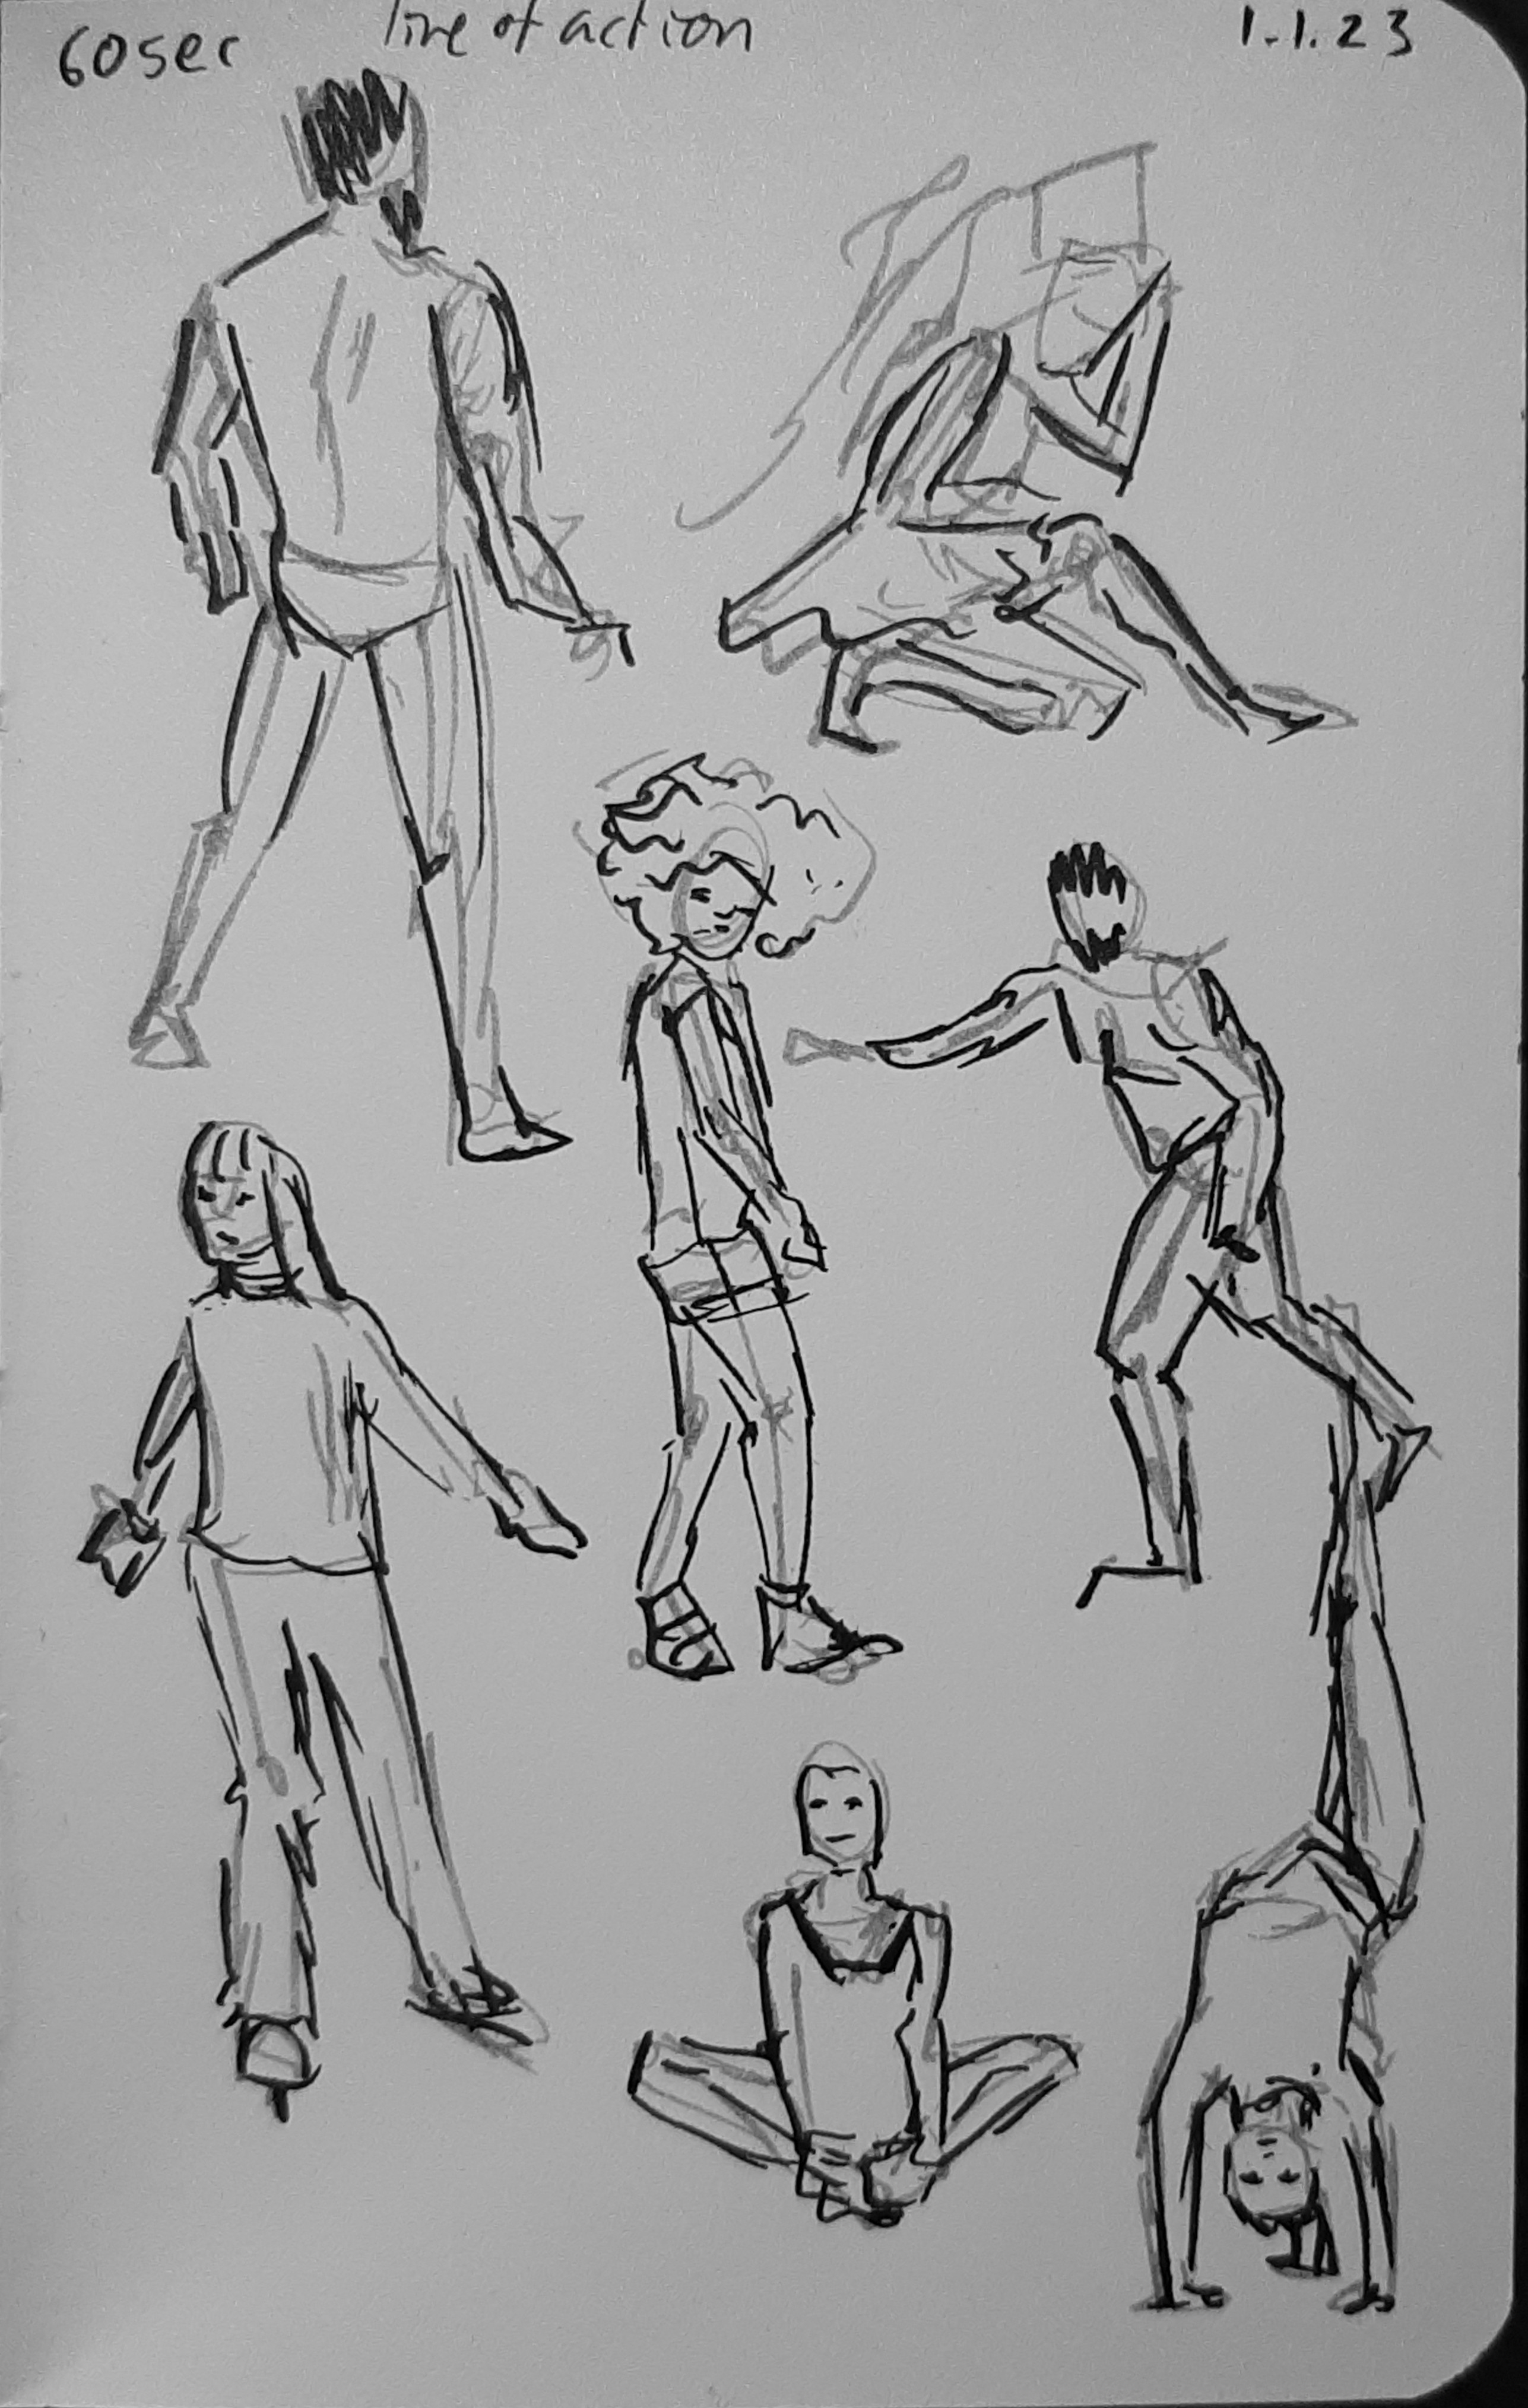 60sec line of action 1.1.23